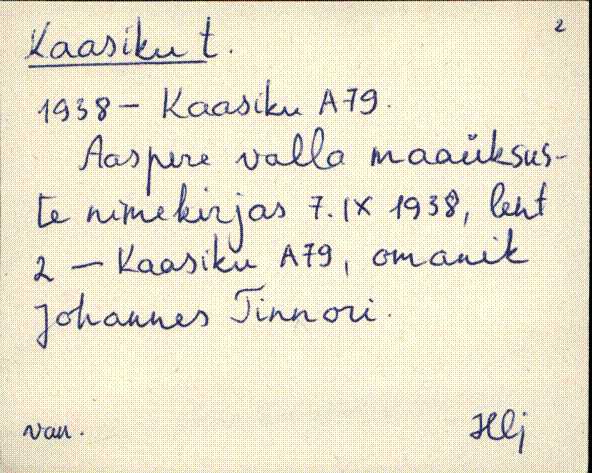 2
Kaasiku t.
1938 – Kaasiku A79.
Aaspere valla maaüksus-
te nimekirjas 7. IX 1938, leht
2 – Kaasiku A79, omanik
Johannes Tinnori.
van.
Hlj